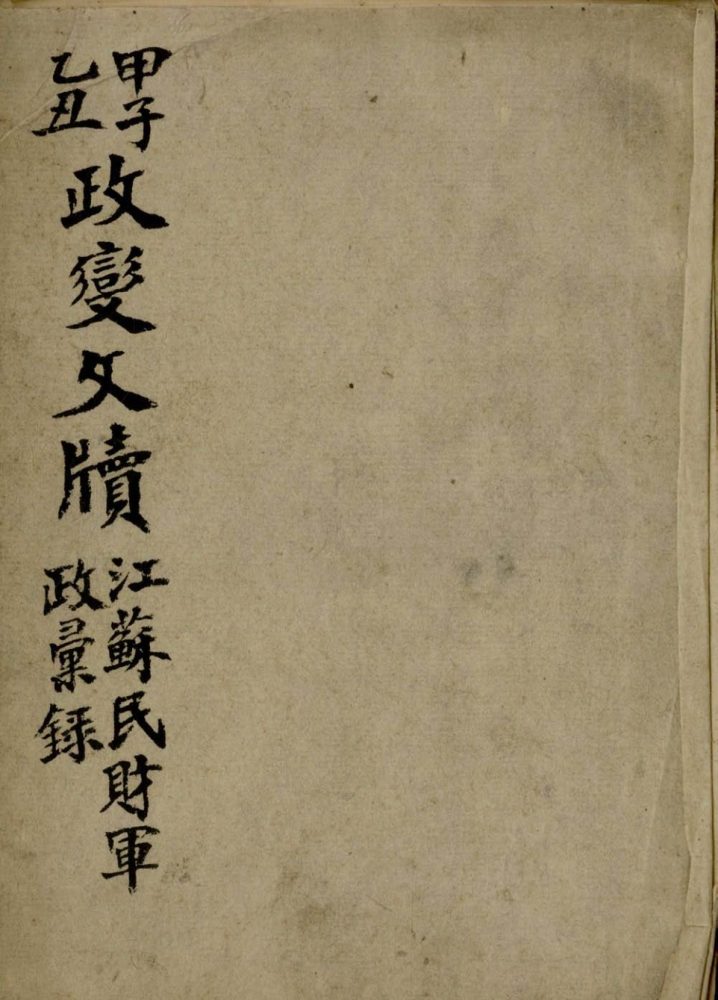 甲子
乙丑
政變文牘
江蘇民財軍
政彙錄